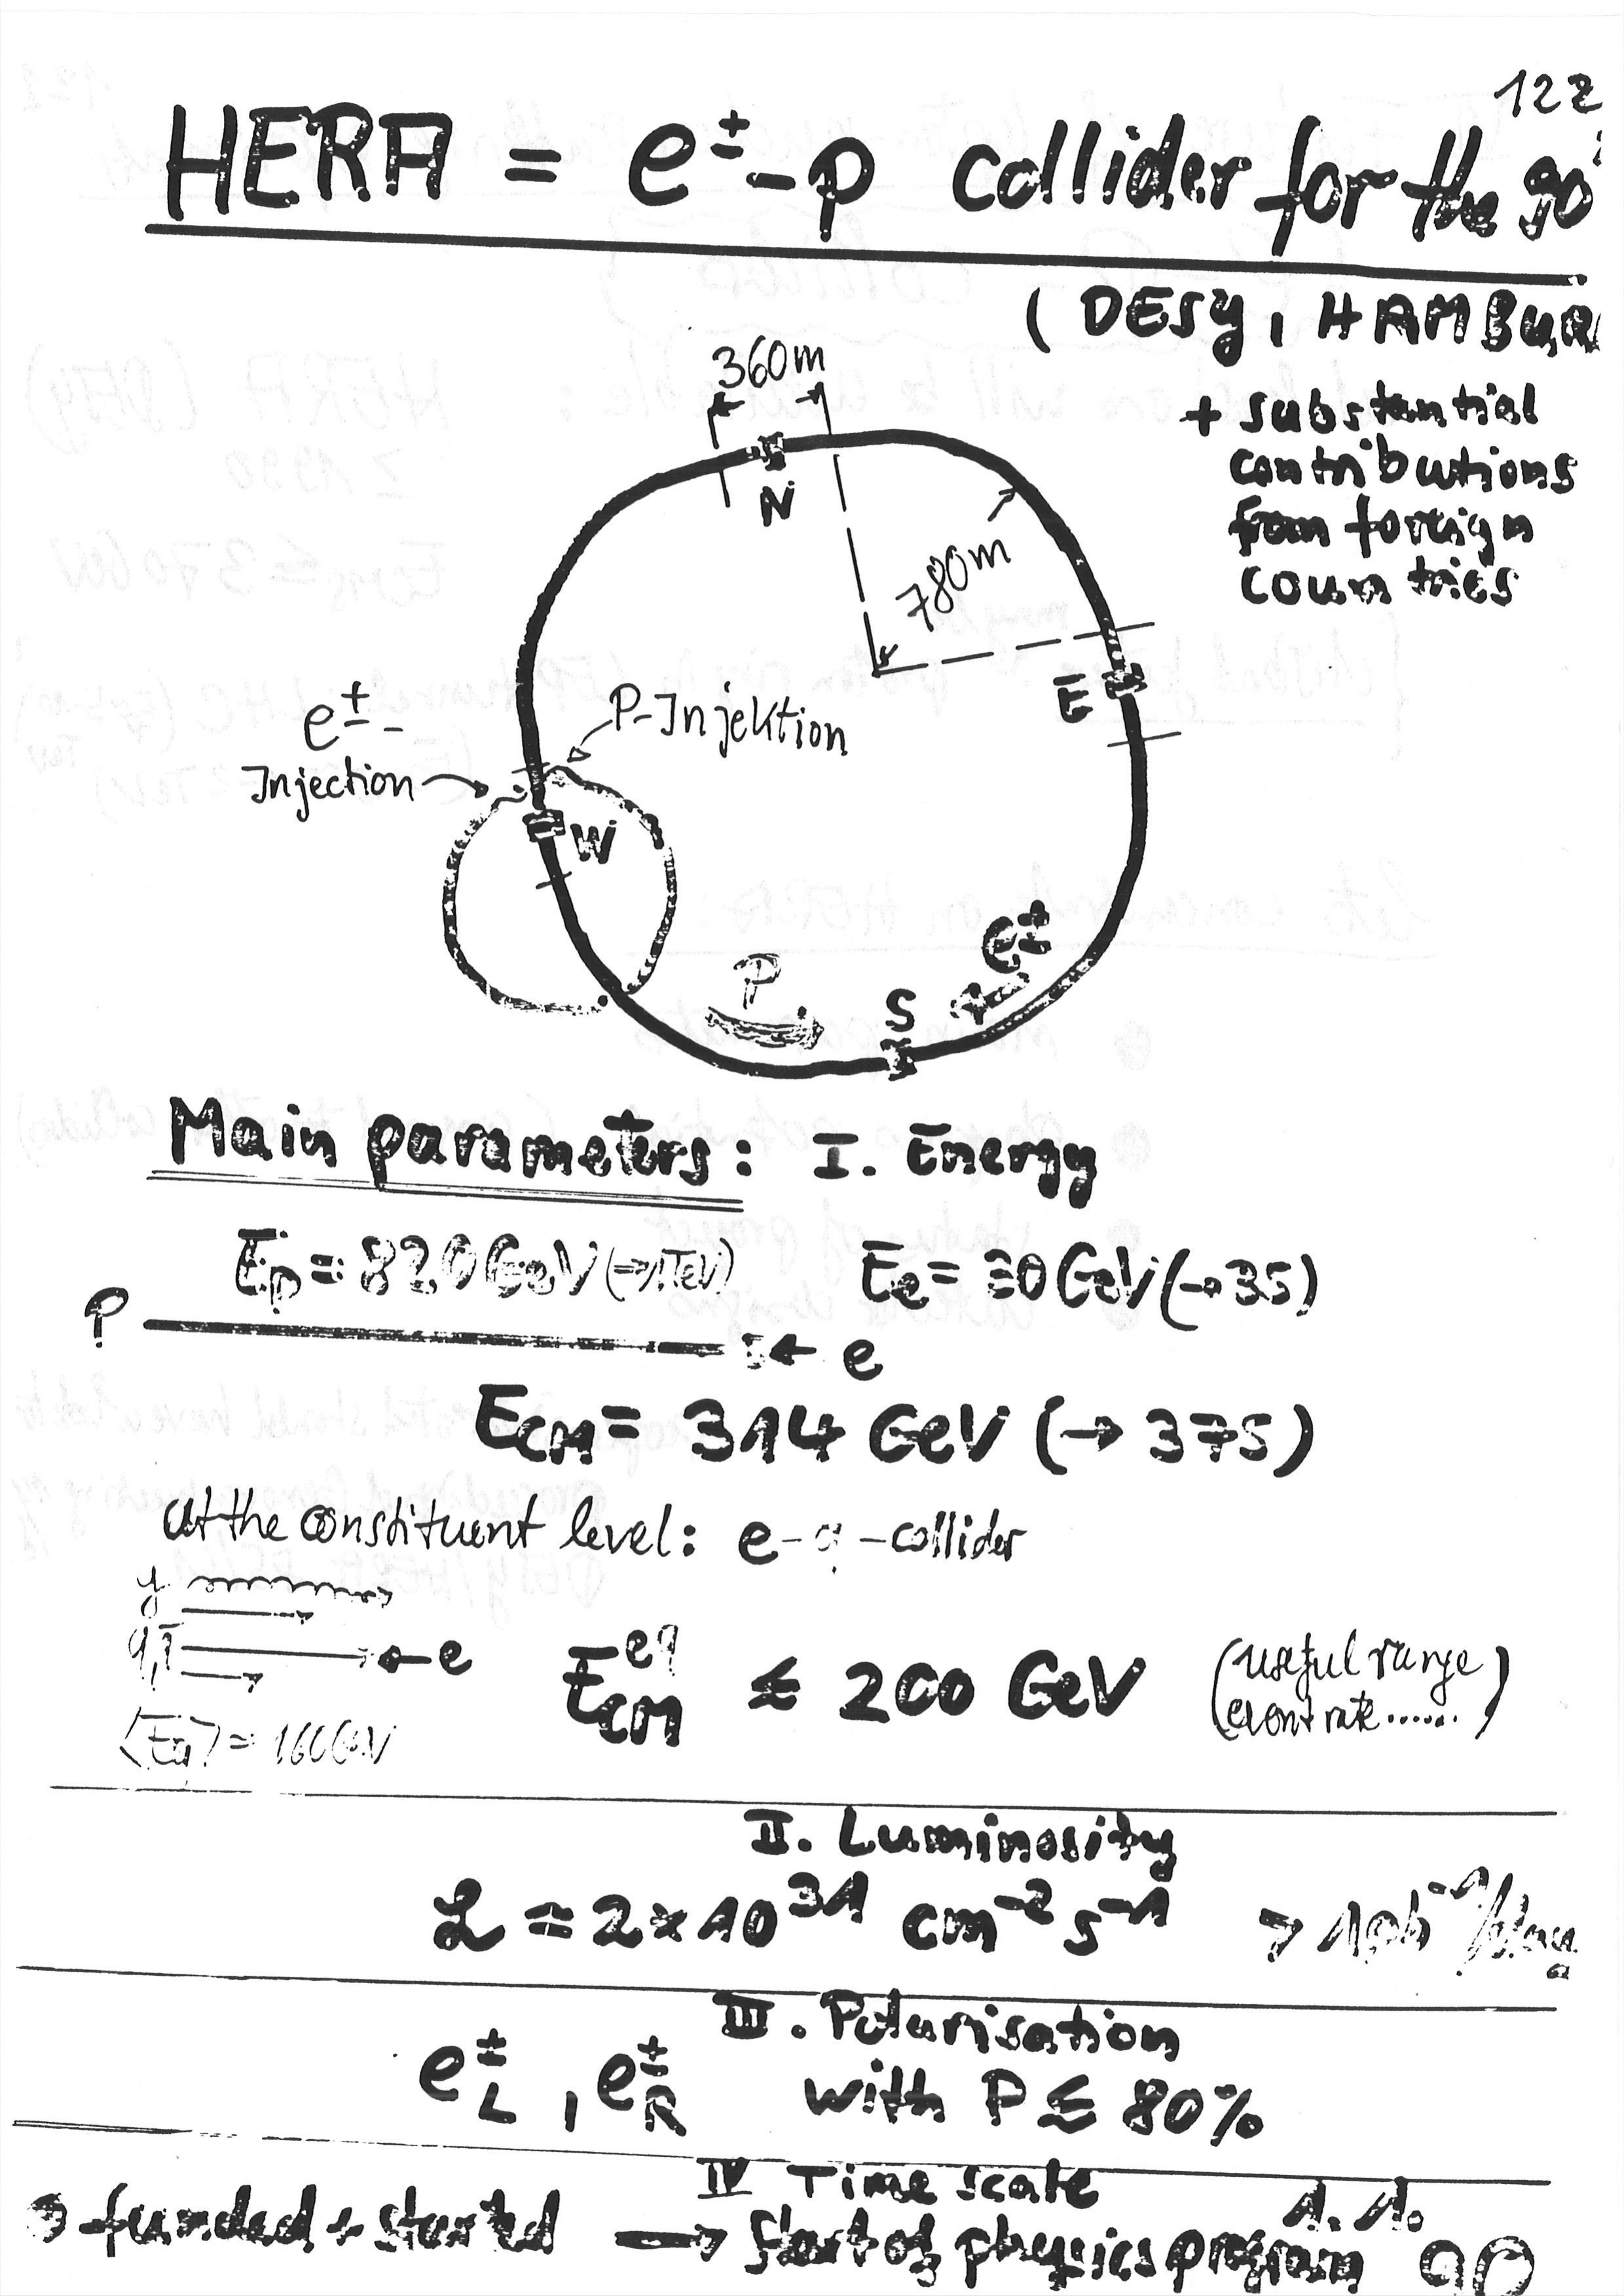 122
HERA = e± - p collider for the 90'
( DESY, HAMBUR
+ substantial
contributions
from foreign
countries
360m
N
780m
E
e± -
Injection
P-Injektion
W
e±
P
S
Main parameters: I. Energy
Ep = 820 GeV (→ 1 TeV) Ee = 30 GeV (→ 35)
P e
ECM = 314 GeV (→ 375)
at the constituent level: e - q - collider
g
q, q̄ e
E^eq_CM ≲ 200 GeV (useful range
event rate ......)
⟨Eq⟩ = 160 GeV
II. Luminosity
L = 2 × 10^31 cm^-2 s^-1 → 1 pb^-1/day
III. Polarisation
e±L , e±R with P ≲ 80%
IV Time scale
funded + started → Start of physics program 1. 1. 90